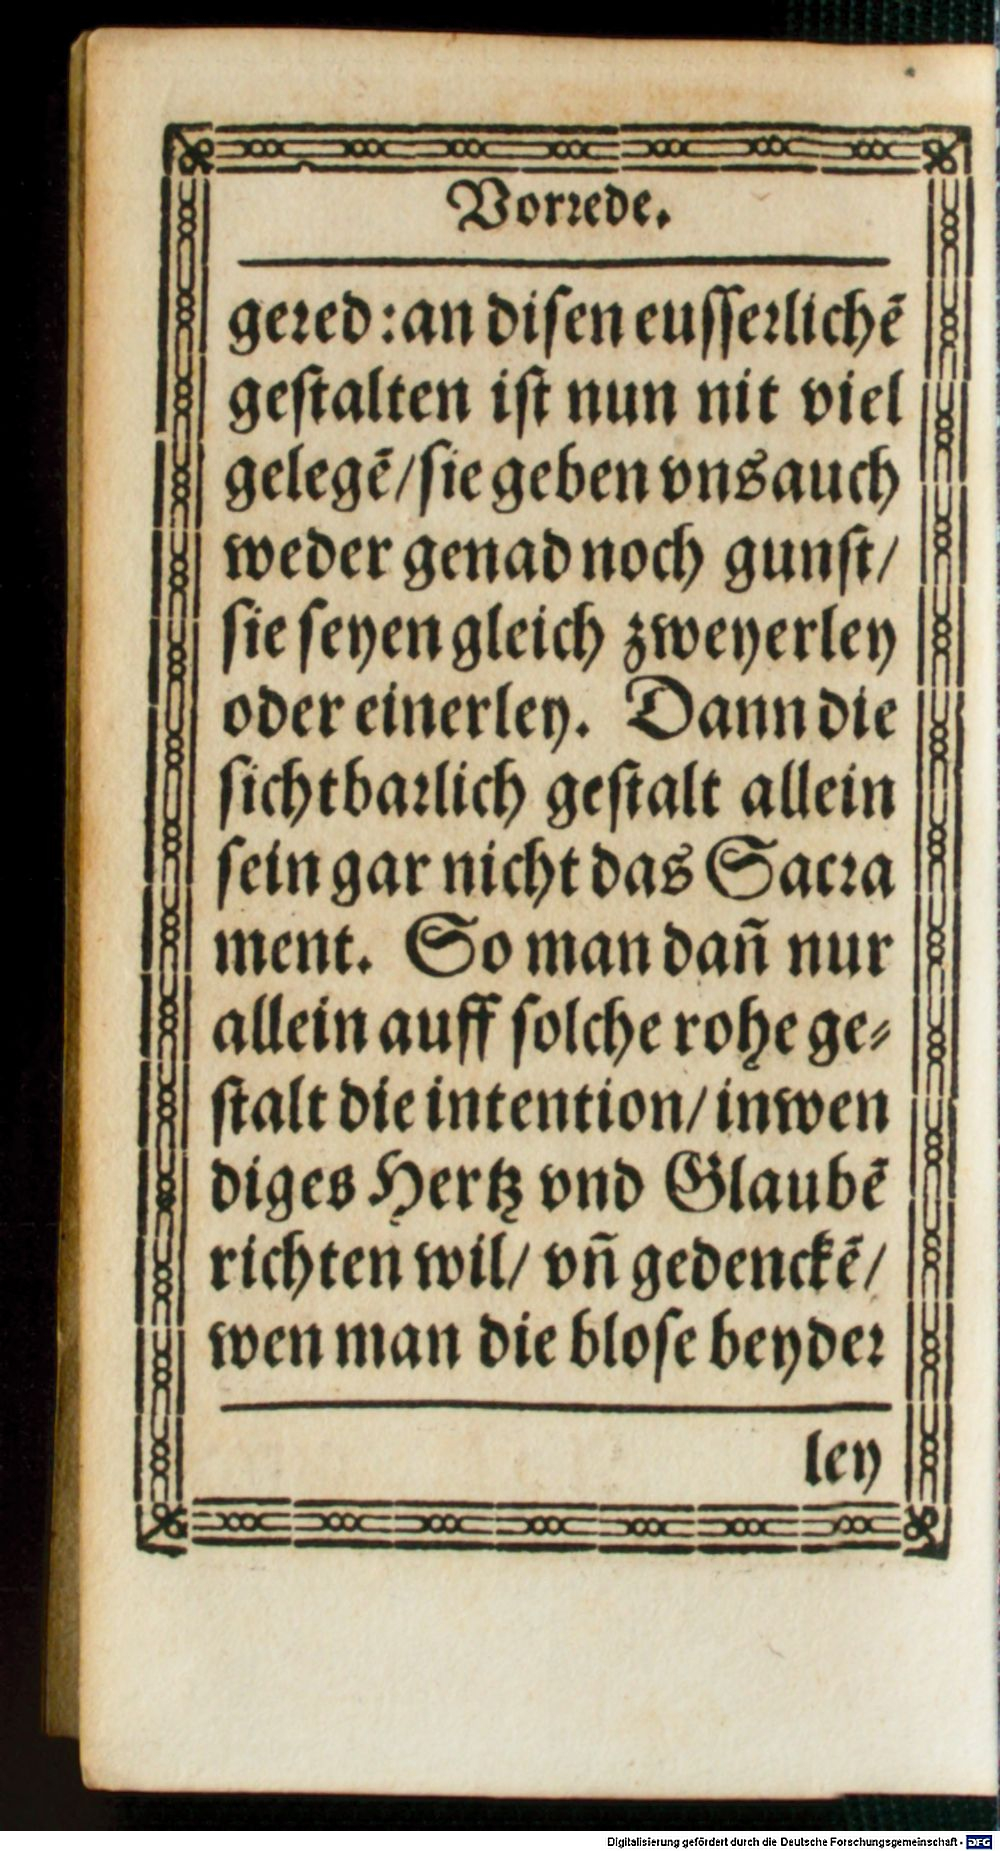 Vorꝛede.
geꝛed: an diſen euſſeꝛlichẽ
geſtalten iſt nun nit viel
gelegẽ/ ſie geben vns auch
weder genad noch gunſt/
ſie ſeyen gleich zweyerley
oder einerley. Dann die
ſichtbaꝛlich geſtalt allein
ſein gar nicht das Sacꝛa
ment. So man dañ nur
allein auff ſolche rohe ge⸗
ſtalt die intention/ inwen
diges Hertz vnd Glaubẽ
richten wil/ vñ gedenckẽ/
wen man die bloſe beydeꝛ
ley
Digitalisierung gefördert durch die Deutsche Forschungsgemeinschaft - DFG